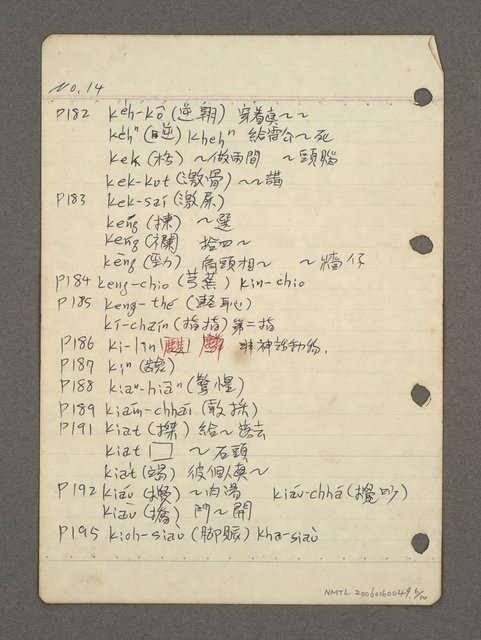 No. 14
P182 ke̍h-kô (逆翱) 穿著真~~
ke̍hⁿ (啞) khehⁿ 給雷公~死
kek (格) ~做兩間 ~頭腦
kek-kut (激骨) ~~講
P183 kek-sái (激屎)
kéng (揀) ~選
kéng (襇) 拾四~
kēng (勁) 肩頭相~ ~牆仔
P184 keng-chio (芎蕉) kin-chio
P185 keng-thé (輕恥)
kí-cháiⁿ (指指) 第二指
P186 ki-lîn 非神話動物.
P187 kîⁿ
P188 kiaⁿ-hiâⁿ (驚惶)
P189 kiáⁿ-chhái (敢採)
P191 kiat (擽) 給~落去
kiat □ ~石頭
kiat (竭) 彼個人真~
P192 kiáu (攪) ~肉湯 kiáu-chhá (攪吵)
kiāu (撟) 門~開
P195 kioh-siàu (脚賬) kha-siàu
NMTL 20060160049, 6/10